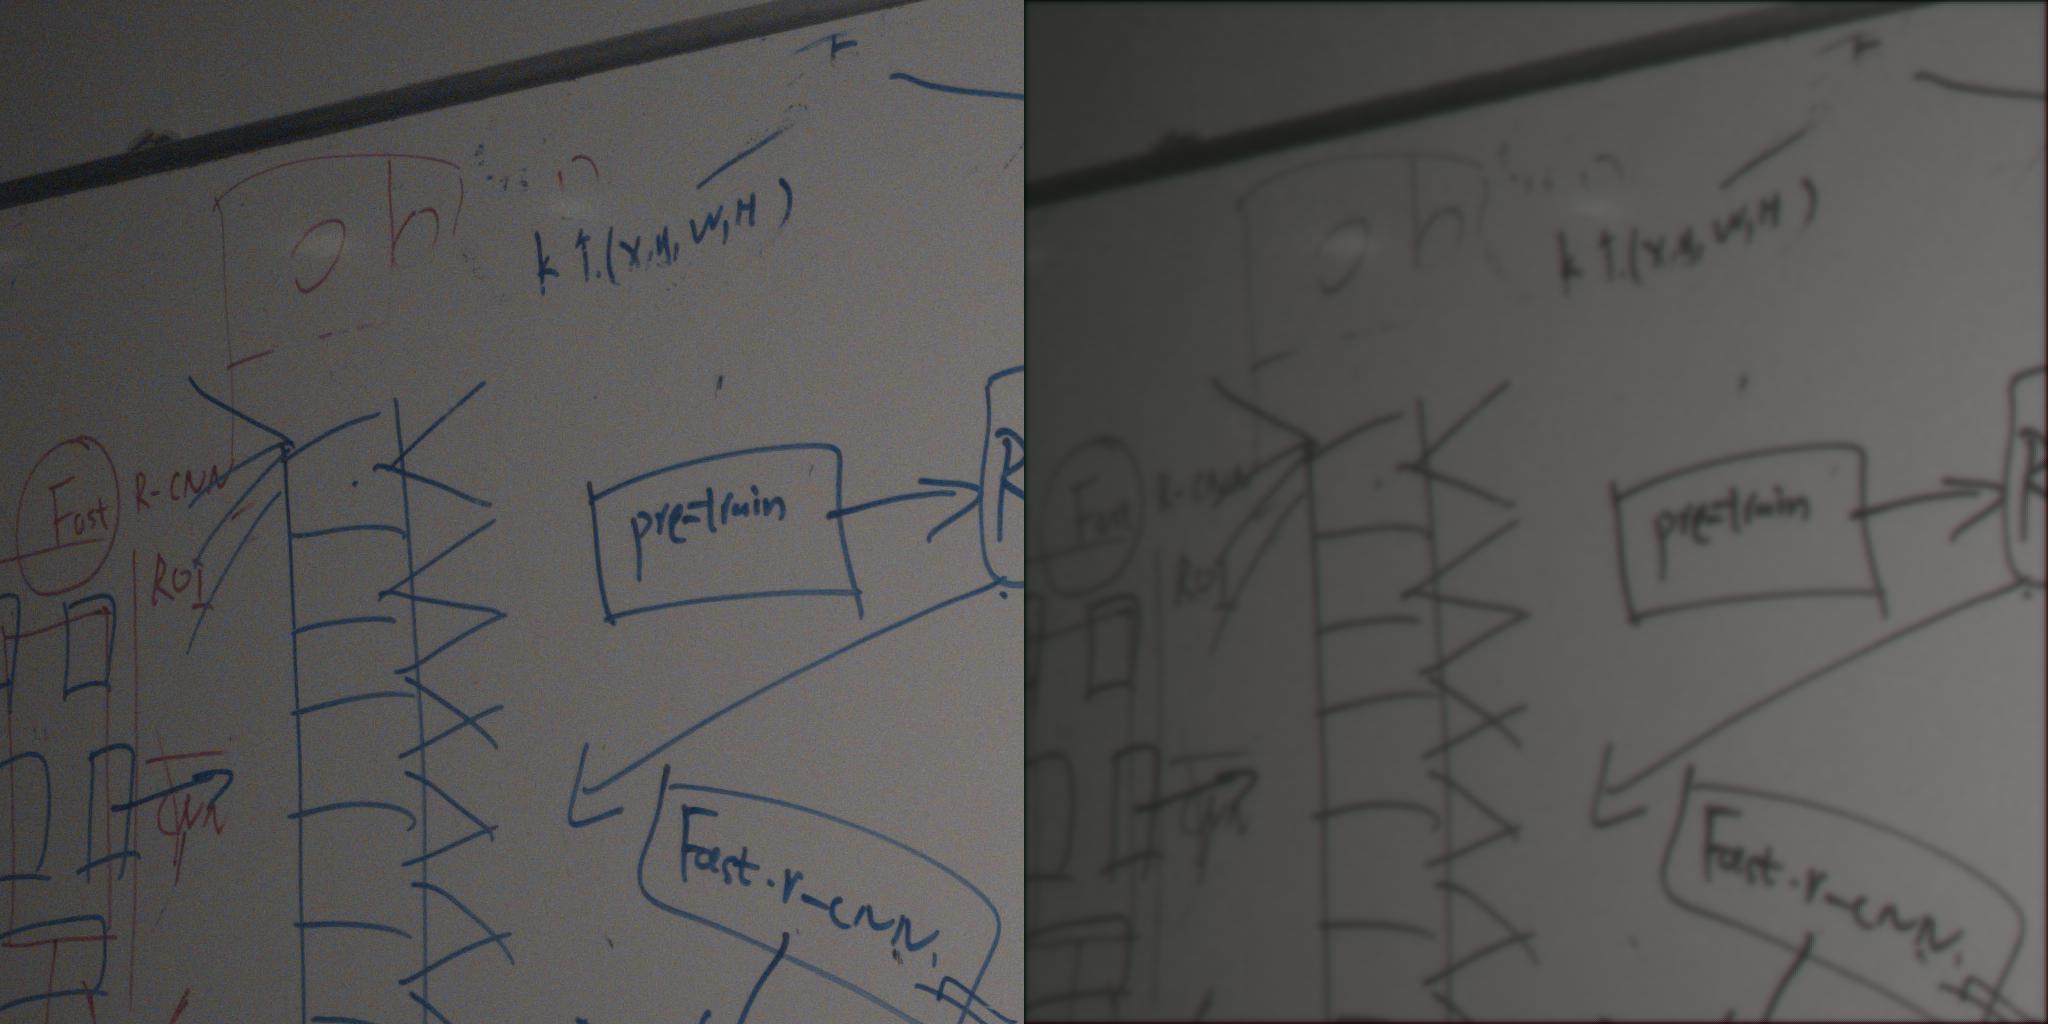 k 个.(x,y,w,H)
Fast R-CNN
ROI
pre-train
R
Fast.r-CNN.
k 个.(x,y,w,H)
Fast R-CNN
ROI
pre-train
R
Fast.r-CNN.